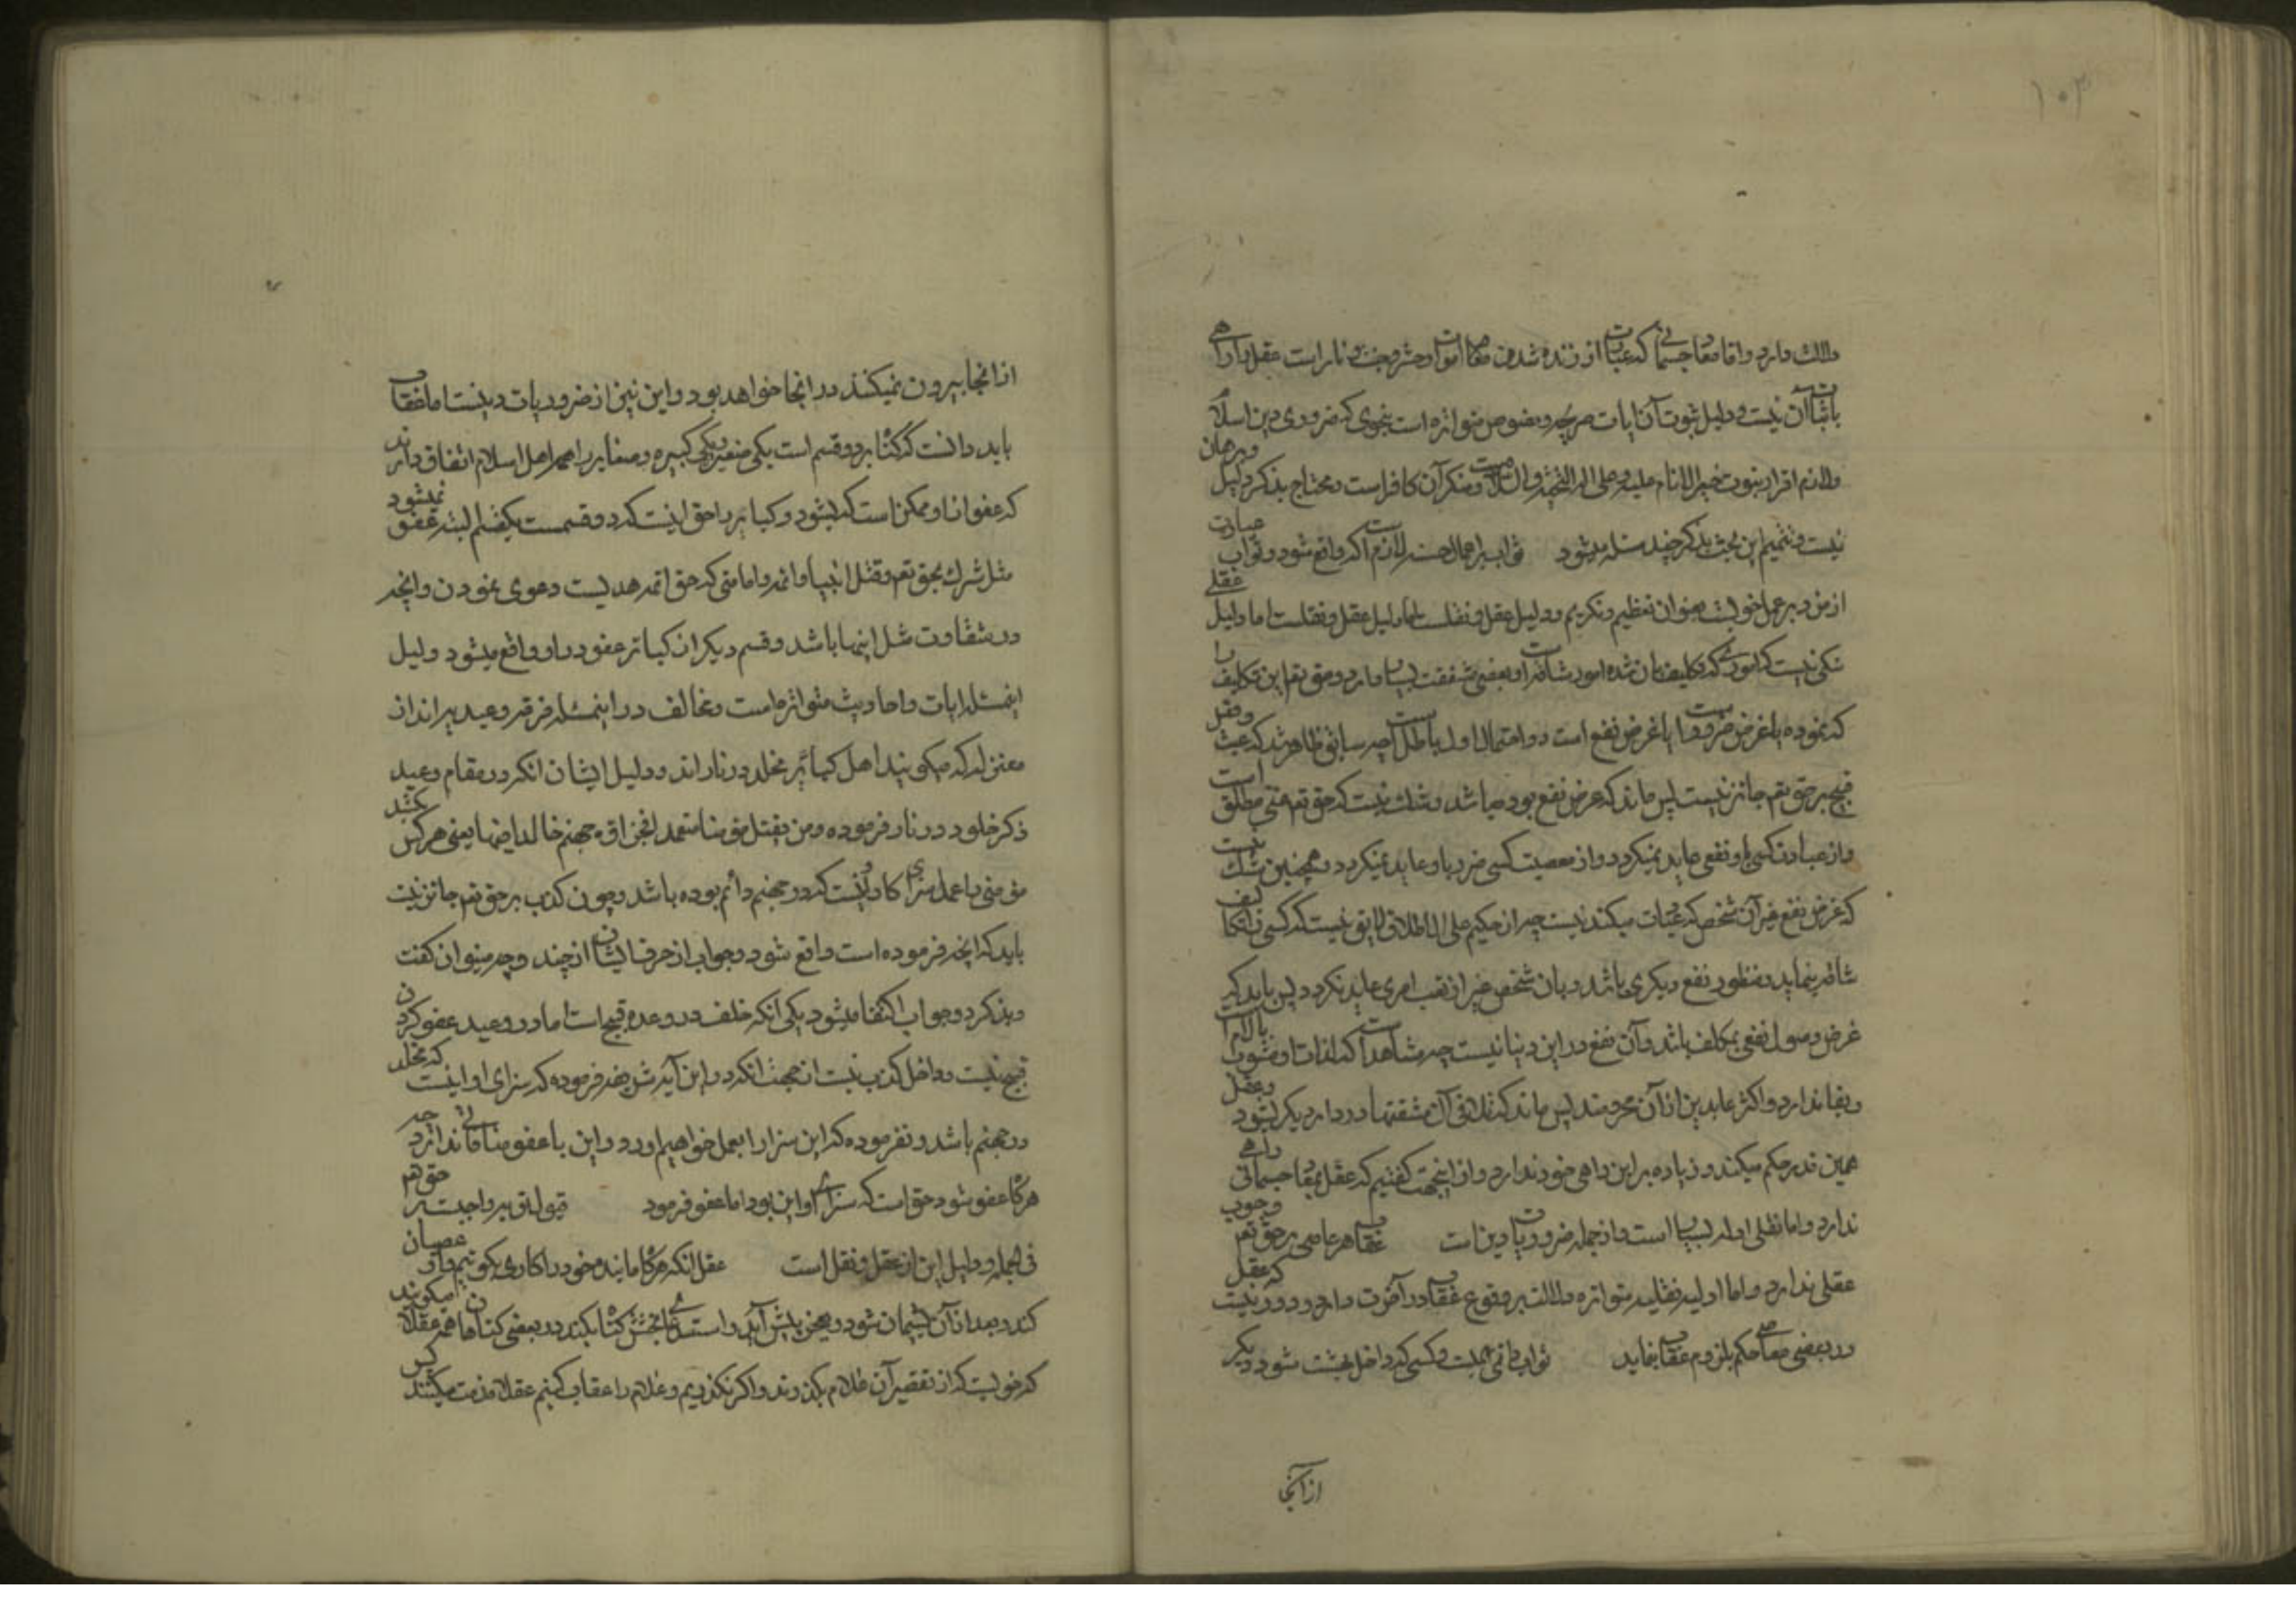 ۱۰۳
دلالت دارد و اما معاد جسمانی که عبارت از زنده شدن تمام اموات و حشر و جنت و نار است عقل را راهی
باثبات آن نیست و دلیل ثبوت آن ایات صریحه و نصوص متواتره است بنحوی که ضروری دین اسلام
و لازم اقرار بنبوت خیر الانام علیه و علی اله التحیة والسلام است و منکر آن کافر است و محتاج بذکر دلیل و برهان
نیست و تتمیم این بحث بذکر چند مسئله میشود ثواب بر اعمال حسنه لازم است اگر واقع شود و ثواب عبارت
از مزد بر عمل خوب است بعنوان تعظیم و تکریم و دلیل عقل و نقلست اما دلیل عقل و نقلست اما دلیل عقلی
شکی نیست که اموری که تکلیف بآن شده امور شاقه است و بعضی مشقت بسیار دارد و حق تعه این تکلیف را
که نموده یا غرض ضرر است و یا غرض نفع است دو احتمال اول باطل است چه سابق ظاهر شد که عبث و فعل
قبیح بر حق تعه جائز نیست پس ماند که غرض نفع بوده باشد و شک نیست که حق تعه غنی مطلق است
و از عبادت کسی باو نفعی عاید نمیگردد و از معصیت کسی ضرر باو عاید نمیگردد و همچنین شک نیست
که غرض نفع غیر آن شخص که عبادت میکند نیست چه از حکیم علی الاطلاق لایق نیست که کسی را تکلیف
شاقه بنماید و منظور نفع دیگری باشد و بان شخص غیر از تعب امری عاید نگردد پس باید که
غرض وصول نفعی بمکلف باشد و آن نفع در این دنیا نیست چه مشاهد است که لذات او مشوب بالام است
و بقا ندارد و اکثر عابدین از آن محرومند پس ماند که تلافی آن مشقتها در دار دیگر بشود و عقل
همین قدر حکم میکند و زیاده بر این راهی خود ندارد و از اینجهت گفتیم که عقل بمعاد جسمانی راهی
ندارد و اما نقلی ادله بسیار است و از جمله ضروریات دین است عقاب هر عاصی بر حق تعه وجوب
عقلی ندارد و اما ادلیه نقلیه متواتره دلالت بر وقوع عقاب در آخرت دارد و دور نیست که عقل
در بعضی معاصی حکم بلزوم عقاب نماید ثواب دائمی است و کسی که داخل بهشت شود دیگر
از آنجا
از انجا بیرون نمیکنند در انجا خواهد بود و این نیز از ضروریات دینست اما عقاب
باید دانست که گناه بر دو قسم است یکی صغیره و یکی کبیره و صغایر را همه اهل اسلام اتفاق دارند
که عفو از او ممکن است که بشود و کبایر را حق اینست که دو قسمست یکقسم البته عفو نمیشود
مثل شرک بحق تعه و قتل انبیا و ائمه و امامتی که حق ائمه هدیست دعوی نمودن و آنچه
در شقاوت مثل اینها باشد و قسم دیگر از کبائر عفو در او واقع میشود و لیل
اینمسئله ایات و احادیث متواتره است و مخالف در اینمسئله فرقه وعیدیه از
معتزله که میگویند اهل کبائر مخلد در نار اند و دلیل ایشان انکه در مقام وعید
ذکر خلود در نار فرموده و من یقتل مؤمنا متعمدا فجزاؤه جهنم خالدا فیها یعنی هر کس بکشد
مؤمنی را عمدا سزای کار او اینست که در جهنم دائم بوده باشد و چون کذب بر حق تعه جائز نیست
باید که انچه فرموده است واقع شود و جواب از حرف ایشان از چند وجه میتوان گفت
و بذکر دو جواب اکتفا میشود یکی انکه خلف در وعده قبیح است اما در وعید عفو کردن
قبیح نیست و داخل کذب نیست از جهت انکه در این آیه شریفه فرموده که سزای او اینست که مخلد
در جهنم باشد و نفرموده که این سزا را بعمل خواهیم اورد و این با عفو منافاتی ندارد چه
هرگاه عفو شود حق است که سزای او این بود اما عفو فرمود قبول توبه واجبست بر حق هم
فی الجمله و دلیل این از عقل و نقل است عقل انکه هرگاه ما بنده خود را کاری بگوئیم و او عصیان
کند و بعد از آن پشیمان شود و بعجز پیش آید و استدعای بخشش گناه بکند در بعضی گناهان همه عقلا میگویند
که خوبست که از تقصیر آن غلام بگذرند و اگر نگذریم و غلام را عقاب کنیم عقلا مذمت میکنند پس